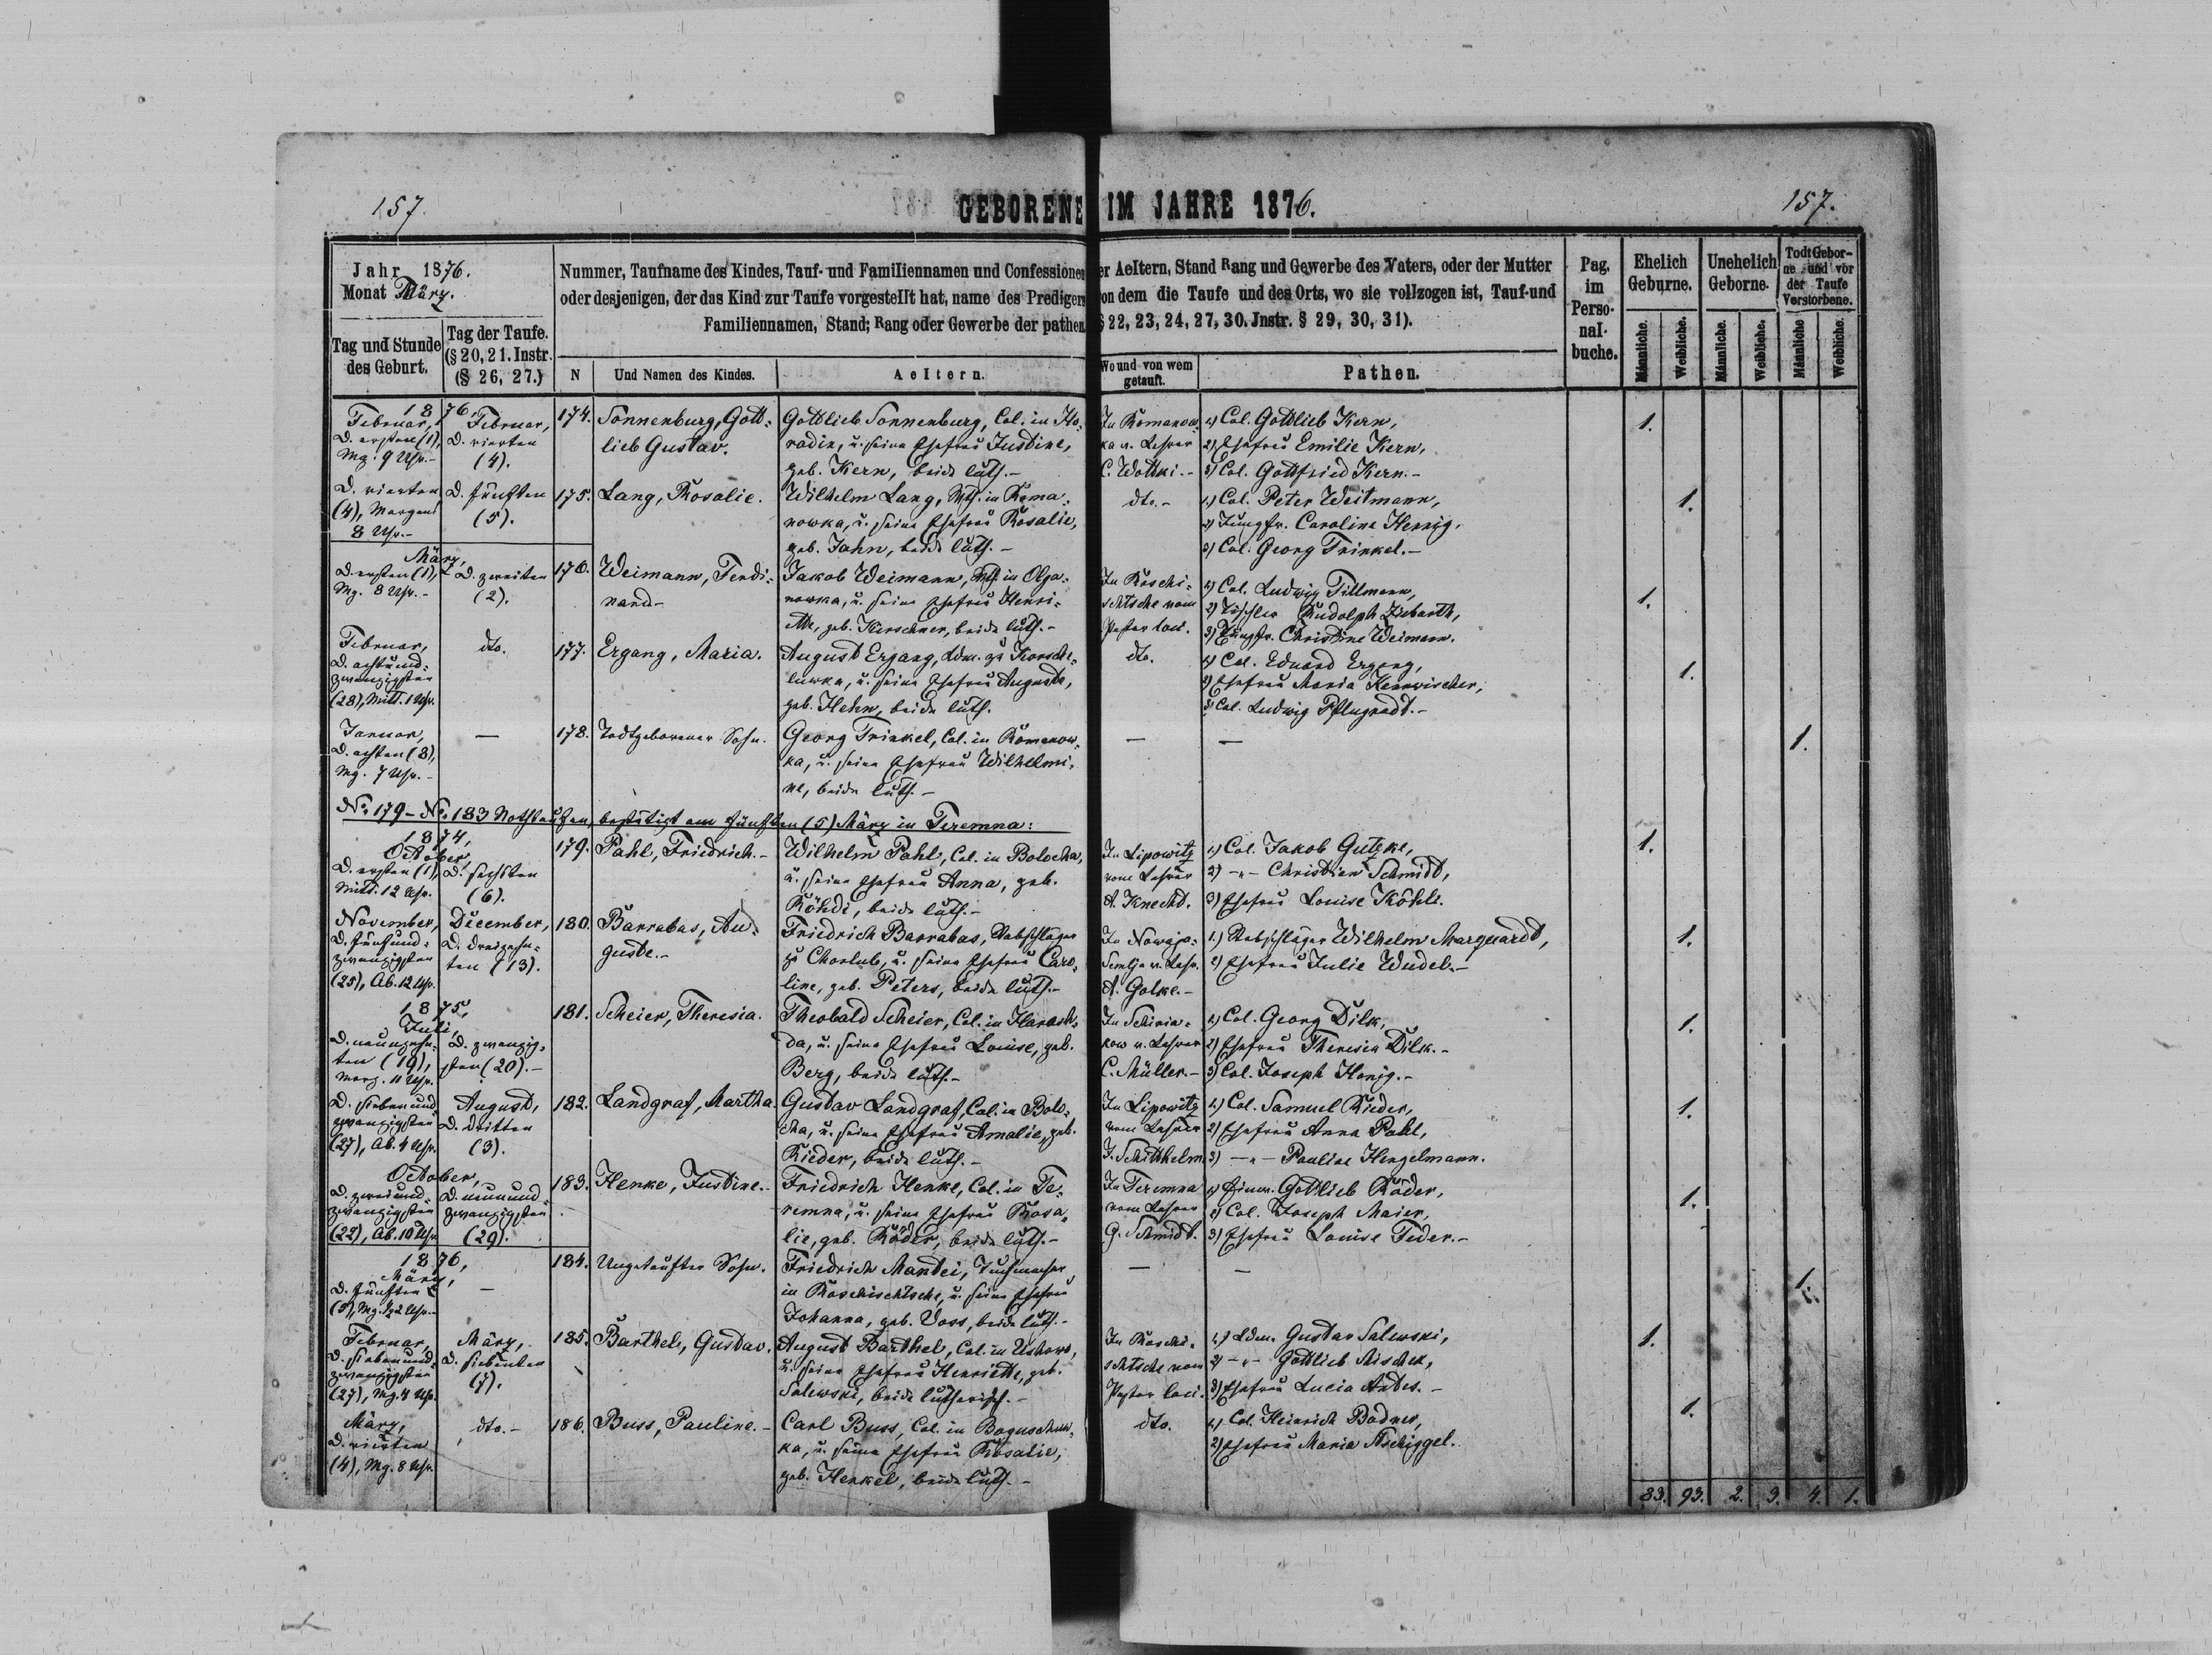 157.
GEBORENE IM JAHRE 1876.
157.
Jahr 1876.
Monat März.
Tag und Stunde
des Geburt.
Tag der Taufe.
(§ 20, 21. Instr.
(§ 26, 27.)
Nummer, Taufname des Kindes, Tauf- und Familiennamen und Confessionen er Aeltern, Stand Rang und Gewerbe des Vaters, oder der Mutter
oder desjenigen, der das Kind zur Taufe vorgestellt hat, name des Predigers on dem die Taufe und des Orts, wo sie vollzogen ist, Tauf-und
Familiennamen, Stand; Rang oder Gewerbe der pathen. § 22, 23, 24, 27, 30. Jnstr. § 29, 30, 31).
N
Und Namen des Kindes.
Aeltern.
Wo und von wem
getauft.
Pathen.
Pag.
im
Perso-
nal-
buche.
Ehelich
Geburne.
Unehelich
Geborne.
Todt Gebor-
ne und vor
der Taufe
Verstorbene.
Männliche.
Weibliche.
Männliche.
Weibliche.
Männliche
Weibliche.
1876,
Februar,
D. ersten (1),
Mg. 9 Uhr.-
Februar,
D. vierten
(4).
174.
Sonnenburg, Gott-
lieb Gustav.
Gottlieb Sonnenburg, Col. in Ho-
rodin, u. seine Ehefrau Justine,
geb. Kern, beide luth.-
In Romanow-
ka v. Lehrer
C. Wottki.-
1) Col. Gottlieb Kern,
2) Ehefrau Emilie Kern,
3) Col. Gottfried Kern.-
1.
D. vierten
(4), Morgens
8 Uhr.-
D. fünften
(5).
175.
Lang, Rosalie.
Wilhelm Lang, Mth. in Roma-
nowka, u. seine Ehefrau Rosalie,
geb. Jahn, beide luth.-
dto.-
1) Col. Peter Weitmann,
2) Jungfr. Caroline Hennig,
3) Col. Georg Trinkel.-
1.
März,
D. ersten (1),
Mg. 8 Uhr.-
D. zweiten
(2).
176.
Weimann, Ferdi-
nand-
Jakob Weimann, Mth. in Olga-
nowka, u. seine Ehefrau Henri-
ette, geb. Kirschner, beide luth.-
In Roschi-
schtsche vom
Pastor loci.
1) Col. Ludwig Tillmann,
2) Tischler Rudolph Ziebarth,
3) Jungfr. Christine Weimann.
1.
Februar,
D. achtund-
zwanzigsten
(28), Mitt. 1 Uhr.
dto.
177.
Ergang, Maria.
August Ergang, Ldm. zu Korsche-
luwka, u. seine Ehefrau Auguste,
geb. Hehn, beide luth.
dto.
1) Col. Eduard Ergang,
2) Ehefrau Maria Kennwischer,
3) Col. Ludwig Pflugradt.-
1.
Januar,
D. achten (8),
Mg. 7 Uhr.-
—
178.
Todtgeborener Sohn.
Georg Trinkel, Col. in Romanow-
ka, u. seine Ehefrau Wilhelmi-
ne, beide luth.-
—
—
1.
No. 179 - No. 183 Nothtaufen, bestätigt am fünften (5) März in Teremna:
1874,
October,
D. ersten (1),
Mitt. 12 Uhr.
D. sechsten
(6).
179.
Pahl, Friedrich.-
Wilhelm Pahl, Col. in Bolocha,
u. seine Ehefrau Anna, geb.
Röhdi, beide luth.-
In Lipowitz
vom Lehrer
A. Knecht.
1) Col. Jakob Gutzke,
2) -„- Christian Schmidt,
3) Ehefrau Louise Köhli.
1.
November,
D. fünfund-
zwanzigsten
(25), Ab. 12 Uhr.
December,
D. dreizehn-
ten (13).
180.
Barrabas, Au-
guste.-
Friedrich Barrabas, Stabschläger
zu Chorlub, u. seine Ehefrau Caro-
line, geb. Peters, beide luth.-
In Nowaja-
Semlja v. Lehr.
A. Golke.-
1.) Stabschläger Wilhelm Marquardt,
2) Ehefrau Julie Wudel.-
1.
1875,
Juli,
D. neunzehn-
ten (19),
Morg. 11 Uhr.
D. zwanzig-
sten (20).-
181.
Scheier, Theresia.
Theobald Scheier, Col. in Harasch-
da, u. seine Ehefrau Louise, geb.
Berg, beide luth.-
In Schinia-
kow v. Lehrer
C. Müller.-
1) Col. Georg Dilk,
2) Ehefrau Theresia Dilk.-
3) Col. Joseph Honig.-
1.
D. siebenund-
zwanzigsten
(27), Ab. 4 Uhr.
August,
D. dritten
(3).
182.
Landgraf, Martha.
Gustav Landgraf, Col. in Bolo-
cha, u. seine Ehefrau Amalie, geb.
Rieder, beide luth.-
In Lipowitz
vom Lehrer
J. Schitthelm.
1.) Col. Samuel Rieder,
2) Ehefrau Anna Pahl,
3) -„- Pauline Hengelmann.
1.
October,
D. zweiund-
zwanzigsten
(22), Ab. 10 Uhr.
D. neunund-
zwanzigsten
(29).
183.
Henke, Justine.-
Friedrich Henke, Col. in Te-
remna, u. seine Ehefrau Rosa-
lie, geb. Röder, beide luth.-
In Teremna
vom Lehrer
G. Schmidt.
1) Gottlieb Röder,
2) Col. Joseph Maier,
3) Ehefrau Louise Feder.-
1.
1876,
März,
D. fünften
(5), Mg. 1/2 2 Uhr.-
—
184.
Ungetaufter Sohn.
Friedrich Mantei, Tuchmacher
in Roschischtsche, u. seine Ehefrau
Johanna, geb. Voss, beide luth.-
—
—
1.
Februar,
D. siebenund-
zwanzigsten
(27), Mg. 4 Uhr.
März,
D. siebenten
(7).
185.
Barthel, Gustav.
August Barthel, Col. in Uschowo,
u. seine Ehefrau Henriette, geb.
Salewski, beide lutherisch.-
In Roschi-
schtsche vom
Pastor loci.
1.) Ldm. Gustav Salewski,
2) -„- Gottlieb Mischek,
3) Ehefrau Lucia Andes.-
1.
März,
D. vierten
(4), Mg. 8 Uhr.
dto.-
186.
Buss, Pauline.-
Carl Buss, Col. in Boguschuw-
ka, u. seine Ehefrau Rosalie,
geb. Henkel, beide luth.-
dto.
1.) Col. Heinrich Bodner,
2) Ehefrau Maria Aschiggel.
1.
83. 93. 2. 3. 4. 1.